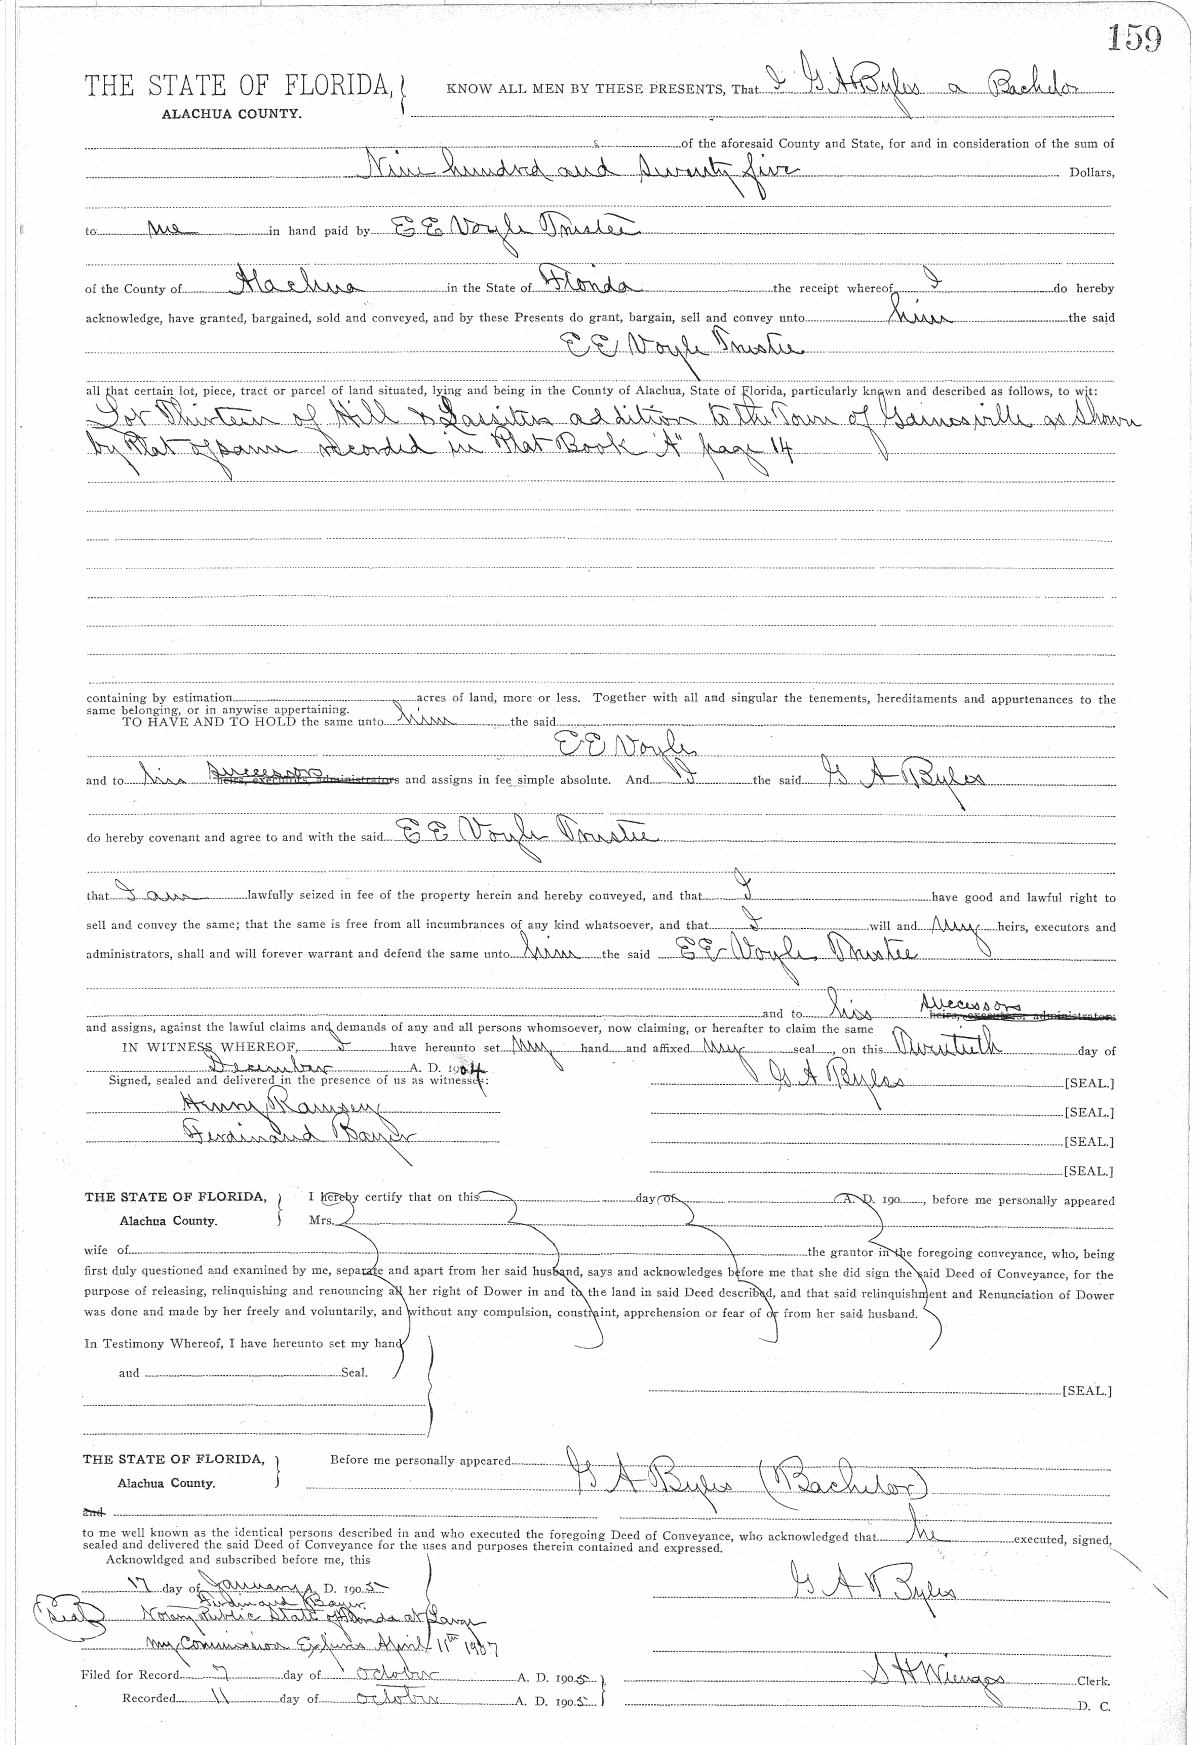 159
THE STATE OF FLORIDA, KNOW ALL MEN BY THESE PRESENTS, That I G A Byles a Bachelor
ALACHUA COUNTY.
of the aforesaid County and State, for and in consideration of the sum of
Nine hundred and Seventy five Dollars,
to me in hand paid by E E Voyle Trustee
of the County of Alachua in the State of Florida the receipt whereof I do hereby
acknowledge, have granted, bargained, sold and conveyed, and by these Presents do grant, bargain, sell and convey unto him the said
E E Voyle Trustee
all that certain lot, piece, tract or parcel of land situated, lying and being in the County of Alachua, State of Florida, particularly known and described as follows, to wit:
Lot Thirteen of Hill & Lassiters addition to the Town of Gainesville as Shown
by Plat of same recorded in Plat Book "A" page 14
containing by estimation acres of land, more or less. Together with all and singular the tenements, hereditaments and appurtenances to the
same belonging, or in anywise appertaining.
TO HAVE AND TO HOLD the same unto him the said
E E Voyle
and to his Successors heirs, executors, administrators and assigns in fee simple absolute. And I the said G A Byles
do hereby covenant and agree to and with the said E E Voyle Trustee
that I am lawfully seized in fee of the property herein and hereby conveyed, and that I have good and lawful right to
sell and convey the same; that the same is free from all incumbrances of any kind whatsoever, and that I will and My heirs, executors and
administrators, shall and will forever warrant and defend the same unto him the said E E Voyle Trustee
and to his Successors heirs, executors, administrators
and assigns, against the lawful claims and demands of any and all persons whomsoever, now claiming, or hereafter to claim the same
IN WITNESS WHEREOF, I have hereunto set My hand and affixed My seal, on this Twentieth day of
December A. D. 1904
Signed, sealed and delivered in the presence of us as witnesses: G A Byles [SEAL.]
Henry Ramsey [SEAL.]
Ferdinand Bayer [SEAL.]
[SEAL.]
THE STATE OF FLORIDA, I hereby certify that on this day of A. D. 190, before me personally appeared
Alachua County. Mrs.
wife of the grantor in the foregoing conveyance, who, being
first duly questioned and examined by me, separate and apart from her said husband, says and acknowledges before me that she did sign the said Deed of Conveyance, for the
purpose of releasing, relinquishing and renouncing all her right of Dower in and to the land in said Deed described, and that said relinquishment and Renunciation of Dower
was done and made by her freely and voluntarily, and without any compulsion, constraint, apprehension or fear of or from her said husband.
In Testimony Whereof, I have hereunto set my hand
and Seal.
[SEAL.]
THE STATE OF FLORIDA, Before me personally appeared G A Byles (Bachelor)
Alachua County.
and
to me well known as the identical persons described in and who executed the foregoing Deed of Conveyance, who acknowledged that he executed, signed,
sealed and delivered the said Deed of Conveyance for the uses and purposes therein contained and expressed.
Acknowldged and subscribed before me, this
17 day of January A. D. 1905 G A Byles
Ferdinand Bayer
(Seal) Notary Public State of Florida at Large
My Commission Expires April 11th 1907
Filed for Record 7 day of October A. D. 1905 S H Wienges Clerk.
Recorded 11 day of October A. D. 1905 D. C.